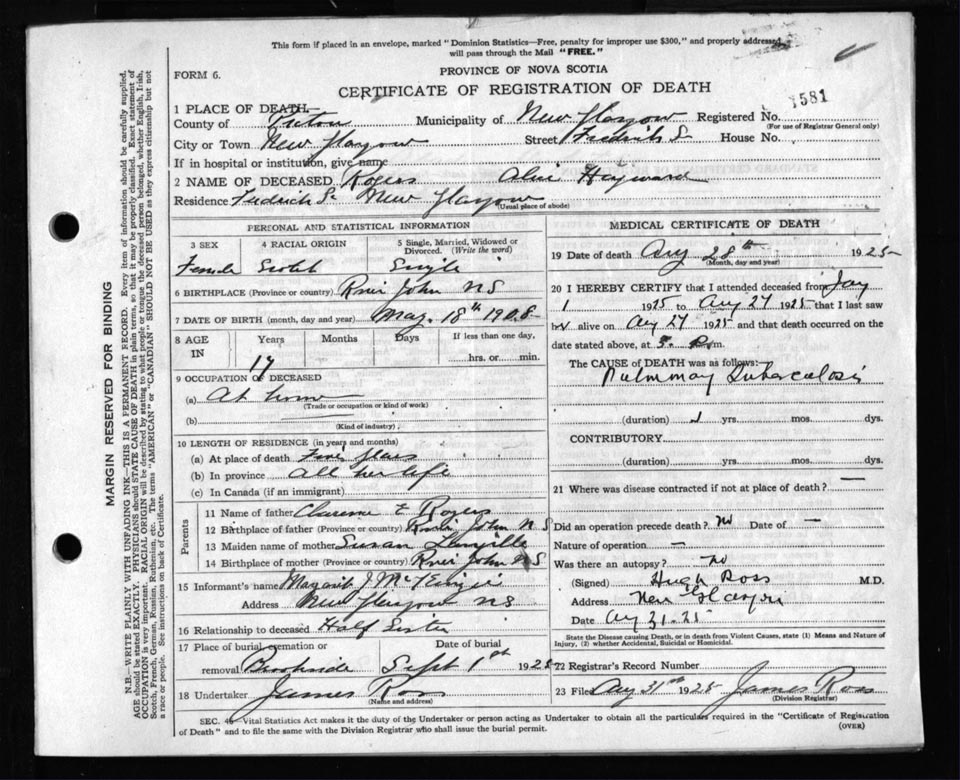 This form if placed in an envelope, marked "Dominion Statistics—Free, penalty for improper use $300," and properly addressed
will pass through the Mail "FREE."
FORM 6.
PROVINCE OF NOVA SCOTIA
CERTIFICATE OF REGISTRATION OF DEATH
1581
1 PLACE OF DEATH—
County of Pictou Municipality of New Glasgow Registered No.
(For use of Registrar General only)
City or Town New Glasgow Street Fredrich St House No.
If in hospital or institution, give name
2 NAME OF DECEASED Rogers Alice Hayward
Residence Fredrich St New Glasgow
(Usual place of abode)
PERSONAL AND STATISTICAL INFORMATION
3 SEX 4 RACIAL ORIGIN 5 Single, Married, Widowed or Divorced. (Write the word)
Female Scotch Single
6 BIRTHPLACE (Province or country) River John N S
7 DATE OF BIRTH (month, day and year) May 18th 1908
8 AGE IN Years Months Days If less than one day,
17 hrs. or min.
9 OCCUPATION OF DECEASED
(a) At home
(Trade or occupation or kind of work)
(b)
(Kind of industry)
10 LENGTH OF RESIDENCE (in years and months)
(a) At place of death years
(b) In province all her life
(c) In Canada (if an immigrant)
Parents
11 Name of father Clarence E Rogers
12 Birthplace of father (Province or country) River John N S
13 Maiden name of mother Susan
14 Birthplace of mother (Province or country) River John N S
15 Informant's name Margaret J.
Address New Glasgow N S
16 Relationship to deceased Half Sister
17 Place of burial, cremation or removal Date of burial
Brookside Sept 1st 1925
18 Undertaker James Ross
(Name and address)
MEDICAL CERTIFICATE OF DEATH
19 Date of death Aug 28th 1925
(Month, day and year)
20 I HEREBY CERTIFY that I attended deceased from Jay
1 1925 to Aug 27 1925 that I last saw
her alive on Aug 27 1925 and that death occurred on the
date stated above, at 5 P m.
The CAUSE OF DEATH was as follows:
Pulmonary Tuberculosis
(duration) 1 yrs. mos. dys.
CONTRIBUTORY
(duration) yrs. mos. dys.
21 Where was disease contracted if not at place of death? —
Did an operation precede death? no Date of —
Nature of operation —
Was there an autopsy? no
(Signed) Hugh Ross M.D.
Address New Glasgow
Date Aug 31. 25
State the Disease causing Death, or in death from Violent Causes, state (1) Means and Nature of
Injury, (2) whether Accidental, Suicidal or Homicidal.
22 Registrar's Record Number
23 Filed Aug 31st 1925 James Ross
(Division Registrar)
SEC. 46—Vital Statistics Act makes it the duty of the Undertaker or person acting as Undertaker to obtain all the particulars required in the "Certificate of Registration
of Death" and to file the same with the Division Registrar who shall issue the burial permit.
(OVER)
MARGIN RESERVED FOR BINDING
N.B.—WRITE PLAINLY WITH UNFADING INK—THIS IS A PERMANENT RECORD. Every item of information should be carefully supplied.
AGE should be stated EXACTLY. PHYSICIANS should STATE CAUSE OF DEATH in plain terms, so that it may be properly classified. Exact statement of
OCCUPATION is very important. RACIAL ORIGIN will be described by stating to what people or tongue the deceased person belonged, whether English, Irish,
Scotch, French, German, Russian, Ruthenian, etc. The terms "AMERICAN" or "CANADIAN" SHOULD NOT BE USED as they express citizenship but not
a race or people. See instructions on back of Certificate.